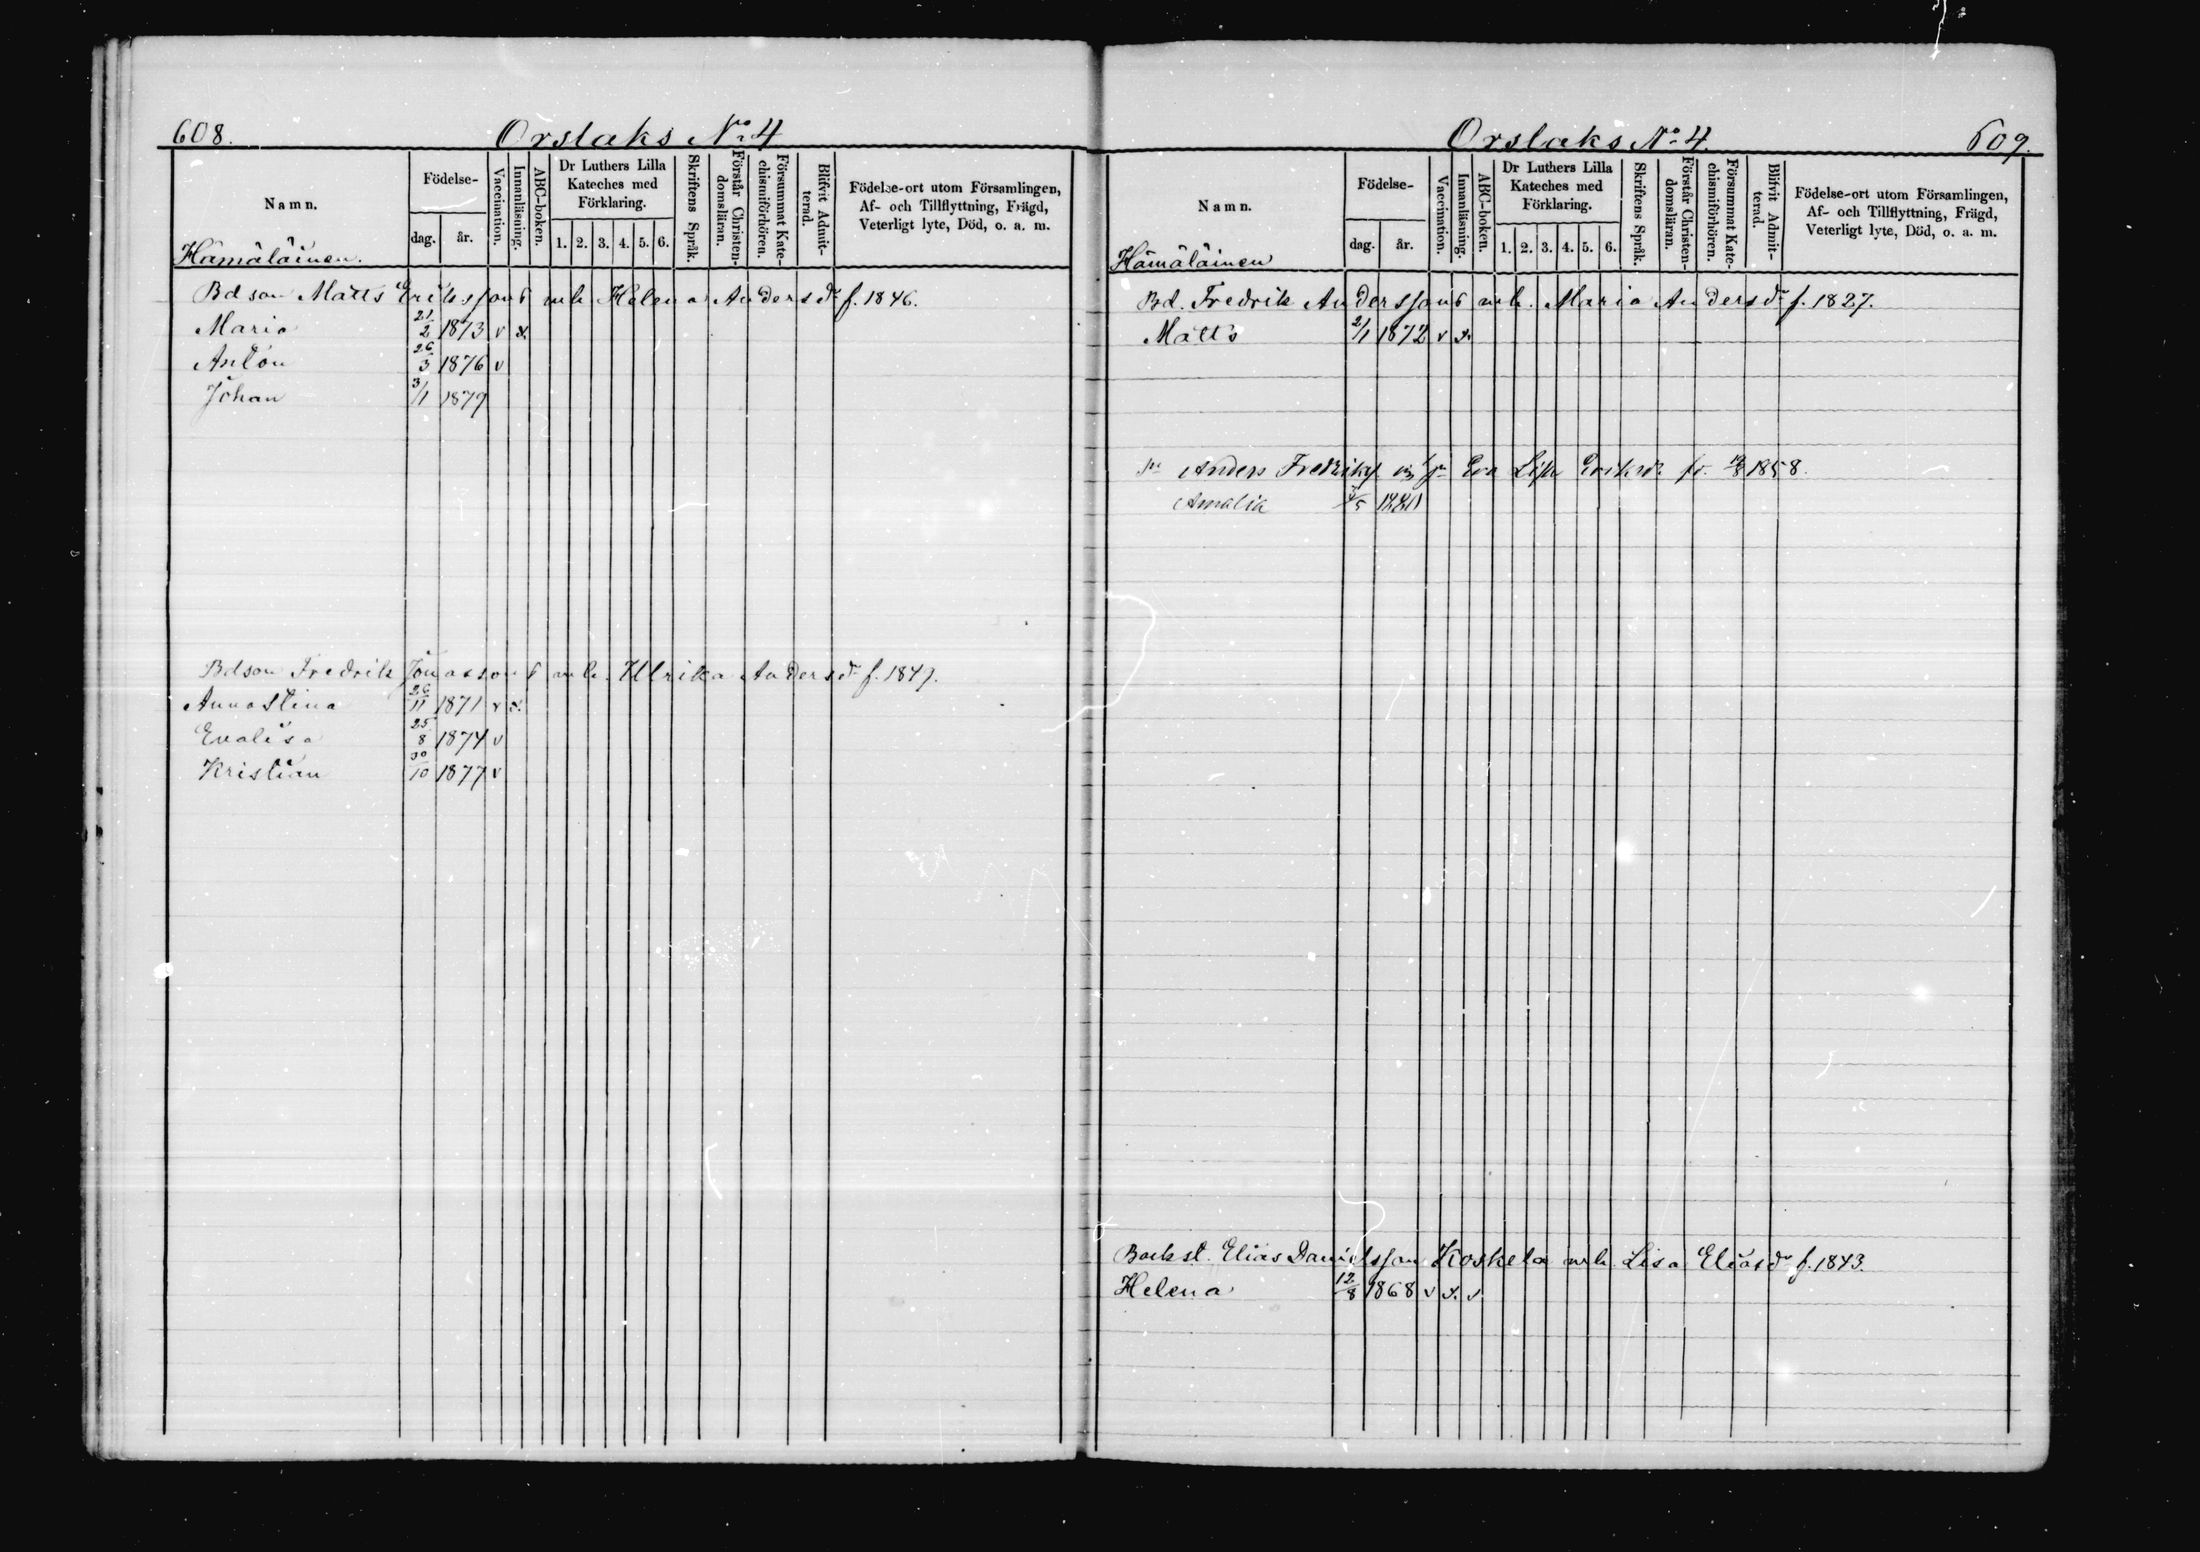 608.
Orslaks No 4
Namn.
Födelse-
dag.
år.
Vaccination.
Innanläsning.
ABC-boken.
Dr Luthers Lilla
Kateches med
Förklaring.
1. 2. 3. 4. 5. 6.
Skriftens Språk.
Förstår Christen-
domsläran.
Försummat Kate-
chismiförhören.
Blifvit Admit-
terad.
Födelse-ort utom Församlingen,
Af- och Tillflyttning, Frägd,
Veterligt lyte, Död, o. a. m.
Hämäläinen.
Bdson Matts Erikssons o mh. Helena Andersdr f. 1846.
Maria 21/2 1873 v x.
Anton 26/3 1876 v
Johan 3/1 1879
Bdson Fredrik Jonasson o mh. Ulrika Andersdr f. 1849.
Annastina 26/11 1871 v x.
Evalisa 25/8 1874 v
Kristian 30/10 1877 v
Orslaks No 4.
609.
Namn.
Födelse-
dag.
år.
Vaccination.
Innanläsning.
ABC-boken.
Dr Luthers Lilla
Kateches med
Förklaring.
1. 2. 3. 4. 5. 6.
Skriftens Språk.
Förstår Christen-
domsläran.
Försummat Kate-
chismiförhören.
Blifvit Admit-
terad.
Födelse-ort utom Församlingen,
Af- och Tillflyttning, Frägd,
Veterligt lyte, Död, o. a. m.
Hämäläinen
Bd. Fredrik Anderssons o mh. Maria Andersdr f. 1827.
Matts 2/1 1872 v x.
Anders Fredriks Eva Lisa Eriksdr 1858.
Amalia 1880
Backst. Elias Danielsson Koskela mh. Lisa Eliasdr f. 1843.
Helena 12/8 1868 v x. v